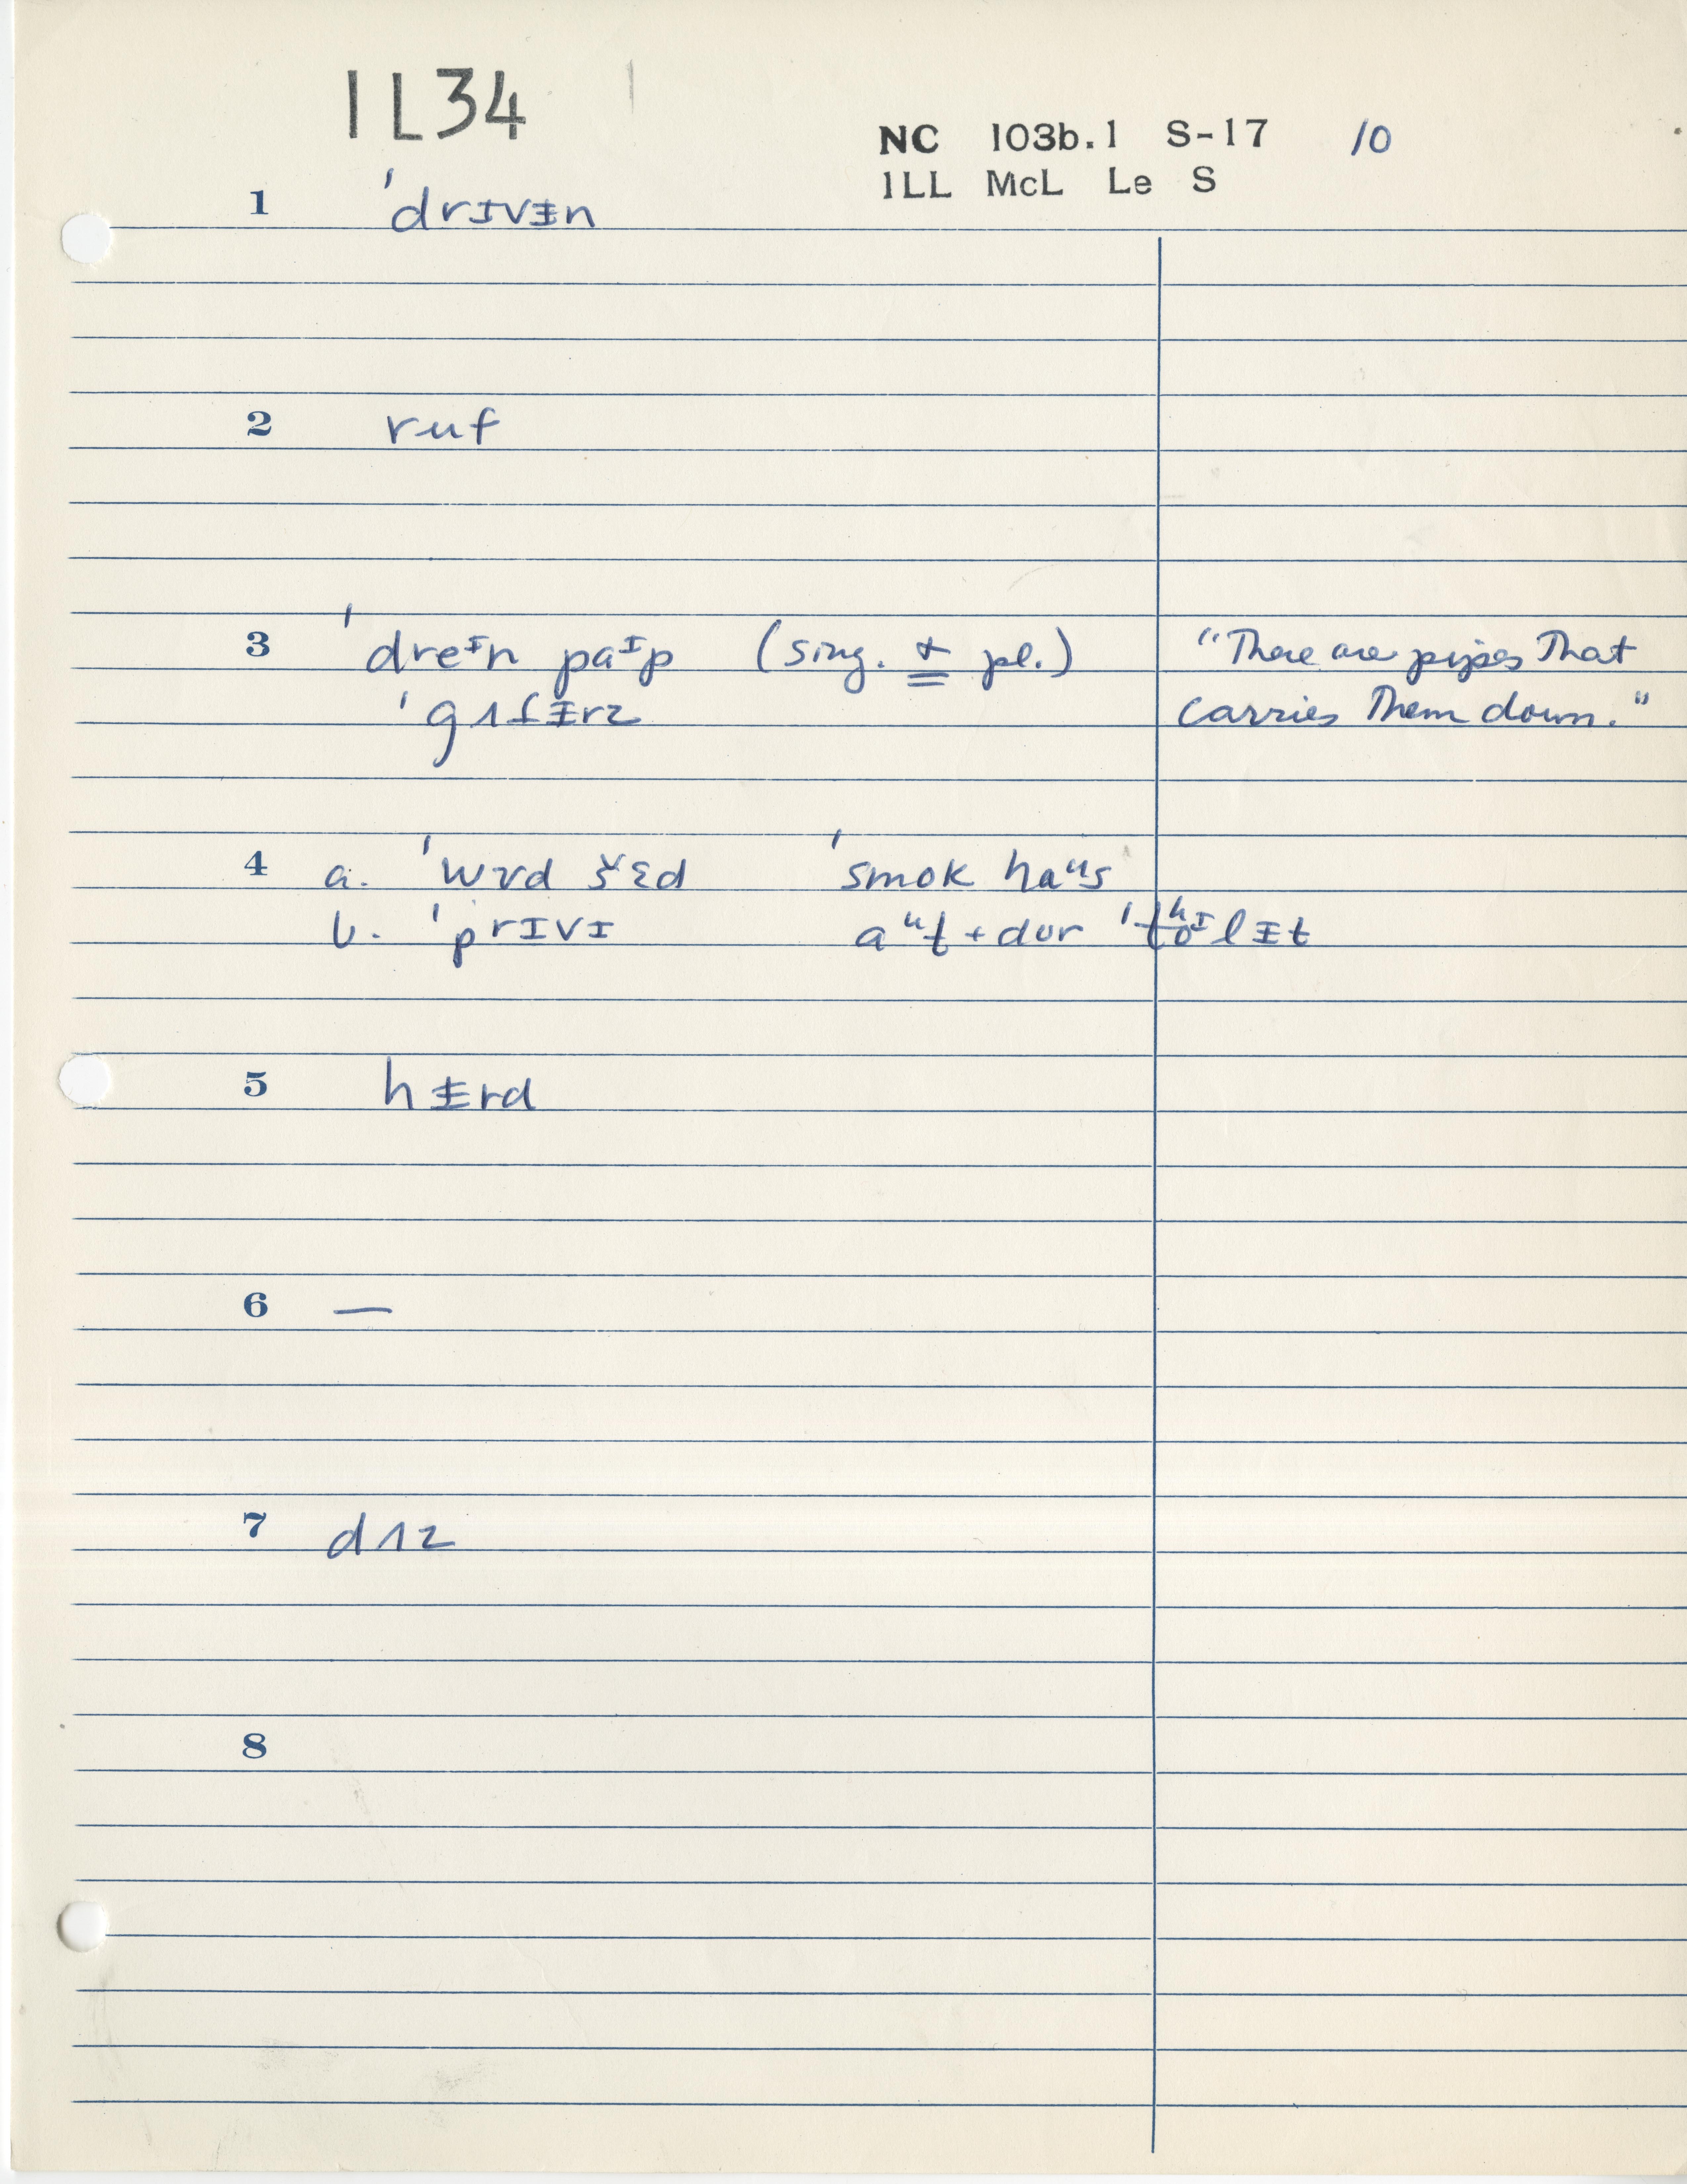 1L34
NC 103b.1 S-17 10
1LL McL Le S
1 ˈdrɪvᵻn
2 ruf
3 ˈdreᶦn paᶦp (sing. & pl.) "There are pipes that
ˈgʌt̬ᵻrz carries them down."
4 a. ˈwɤd š̌ɛd ˈsmok haᵘs
b. ˈprɪvɪ aᵘt̬+dor ˈtʰoᶦlᵻt
5 hᵻrd
6 —
7 dʌz
8